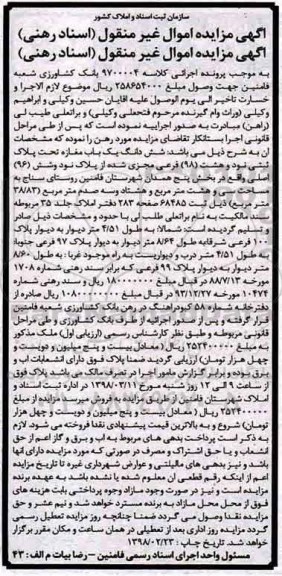 سازمان ثبت اسناد و املاک کشور
آگهی مزایده اموال غیر منقول (اسناد رهنی)
آگهی مزایده اموال غیر منقول (اسناد رهنی)
به موجب پرونده اجرائی کلاسه ۹۷۰۰۰۰۴ بانک کشاورزی شعبه
فامنین جهت وصول مبلغ ۲۵۸۶۵۴۰۰۰ ریال موضوع لازم الاجرا و
خسارت تاخیر الی یوم الوصول علیه آقایان حسین وکیلی و ابراهیم
وکیلی (وراث وام گیرنده مرحوم فتحعلی وکیلی) و براتعلی طیب لی
(راهن) مبادرت به صدور اجراییه نموده است که پس از طی مراحل
قانونی اجرا بستانکار تقاضای مزایده مورد رهن را نموده که مشخصات
آن به شرح ذیل می باشد: شش دانگ یک باب مغازه تحت پلاک
ثبتی نود و هشت (۹۸) فرعی مجزی شده از پلاک نود و شش (۹۶)
اصلی واقع در بخش پنج همدان شهرستان فامنین روستای سناج به
مساحت سی و هشت متر مربع و هشتاد و سه صدم متر مربع (۳۸/۸۳
متر مربع) ذیل ثبت ۶۸۴۸۵ صفحه ۲۸۳ دفتر املاک جلد ۳۵ مربوطه
سند مالکیت به نام براتعلی طلب لی با حدود و مشخصات ذیل صادر
و تسلیم گردیده است: شمالا: به طول ۴/۵۱ متر دیوار به دیوار پلاک
۱۰۰ فرعی شرقا به طول ۸/۶۴ متر دیوار به دیوار پلاک ۹۷ فرعی جنوبا:
به طول ۴/۵۱ متر درب و دیواریست به راه موجود غربا: به طول ۸/۶۰
متر دیوار به دیوار پلاک ۹۹ فرعی که برابر سند رهنی شماره ۱۷۰۸
مورخه ۸۸/۷/۱۳ در قبال مبلغ ۱۸۰۰۰۰۰۰۰ ریال و سند رهنی شماره
۱۰۴۷۴ مورخه ۹۳/۱۲/۲۷ در قبال مبلغ ۱۰۸۰۰۰۰۰۰ ریال صادره از
دفترخانه شماره ۵۸ کبودراهنگ در رهن بانک کشاورزی شعبه فامنین
قرار گرفته و پس از صدور اجرائیه از طرف بانک کشاورزی و طی مراحل
قانونی مربوطه و طبق نظر کارشناس رسمی (ارزیابی اول) ملک مذکور
به مبلغ ۲۵۲۴۰۰۰۰۰ ریال (معادل بیست و پنج میلیون و دویست و
چهل هزار تومان) ارزیابی گردید ضمنا پلاک فوق دارای انشعابات آب و
برق بوده و برابر گزارش مامور اجرا در تصرف مالک می باشد پلاک فوق
از ساعت ۹ الی ۱۲ روز شنبه مورخ ۱۳۹۸/۰۳/۱۱ در اداره ثبت اسناد و
املاک شهرستان فامنین از طریق مزایده به فروش میرسد مزایده از مبلغ
۲۵۲۴۰۰۰۰۰ ریال (معادل بیست و پنج میلیون و دویست و چهل هزار
تومان) شروع و به بالاترین قیمت پیشنهادی نقدا فروخته می شود. لازم
به ذکر است پرداخت بدهی های مربوط به آب و برق و گاز اعم از حق
انشعاب و یا حق اشتراک و مصرف در صورتی که مورد مزایده دارای آنها
باشد و نیز بدهی های مالیاتی و عوارض شهرداری غیره تا تاریخ مزایده
اعم از اینکه رقم قطعی آن معلوم شده یا نشده باشد به عهده برنده
مزایده است و نیز در صورت وجود مازاد وجوه پرداختی بابت هزینه های
فوق از محل مازاد به برنده مسترد خواهد شد و نیم عشر و حق
مزایده نقدا وصول می گردد ضمنا چنانچه روز مزایده تعطیل رسمی
گردد مزایده روز اداری بعد از تعطیلی در همان ساعت و مکان مقرر برگزار
خواهد شد. تاریخ چاپ: ۱۳۹۸/۰۲/۲۳
مسئول واحد اجرای اسناد رسمی فامنین - رضا بیات م الف: ۴۳